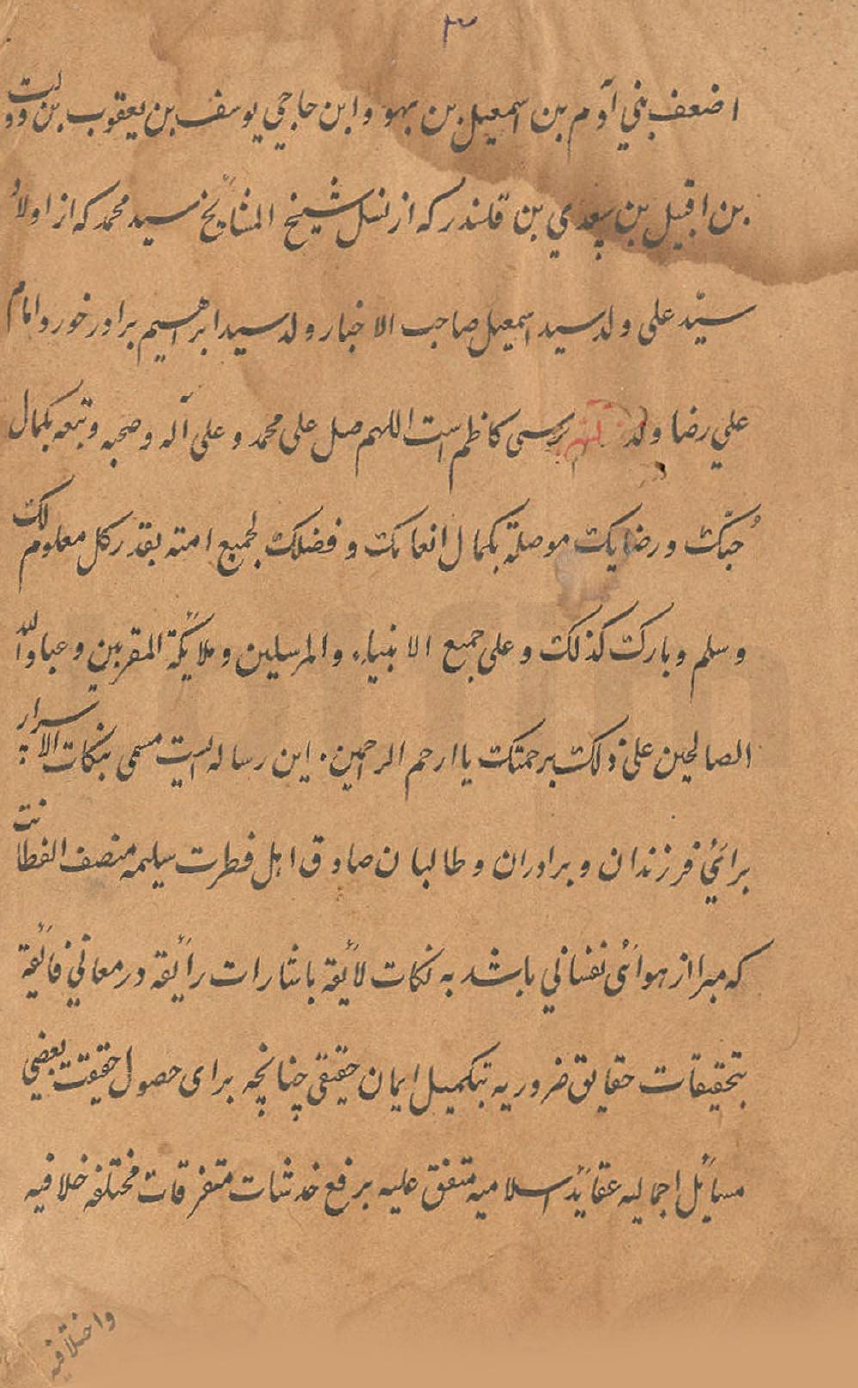 ٣
اضعف بني آدم بن اسمعيل بن بهو وابن حاجي يوسف بن يعقوب بن دولت
بن اقبيل بن سعدي بن قلندر که از نسل شيخ المشايخ سيد محمد که از اولاد
سيّد علی ولد سيد اسمعيل صاحب الاخبار ولد سيد ابراهيم برادر خورد امام
علي رضا ولد موسی کاظم است اللهم صل علی محمد و علی آله وصحبه وتبعه بکمال
حبّک ورضايک موصلة بکمال انعامک وفضلک لجميع امته بقدر کل معلوم لک
وسلم وبارک کذلک وعلی جميع الانبياء والمرسلين وملايکة المقربين وعباد الله
الصالحين علی ذلک برحمتک يا ارحم الرحمين. اين رساله ايست مسمی بنکات الاسرار
برائي فرزندان و برادران و طالبان صادق اهل فطرت سليمه منصف الفطانت
که مبرا از هوائی نفساني باشد به نکات لايقه باشارات رايقه در معاني فايقة
بتحقيقات حقايق ضروريه بتکميل ايمان حقيقی چنانچه برای حصول حقيقت بعضي
مسايل اجماليه عقايد اسلاميه متفق عليه برفع خدشات متفرقات مختلفه خلافيه
واختلافيه